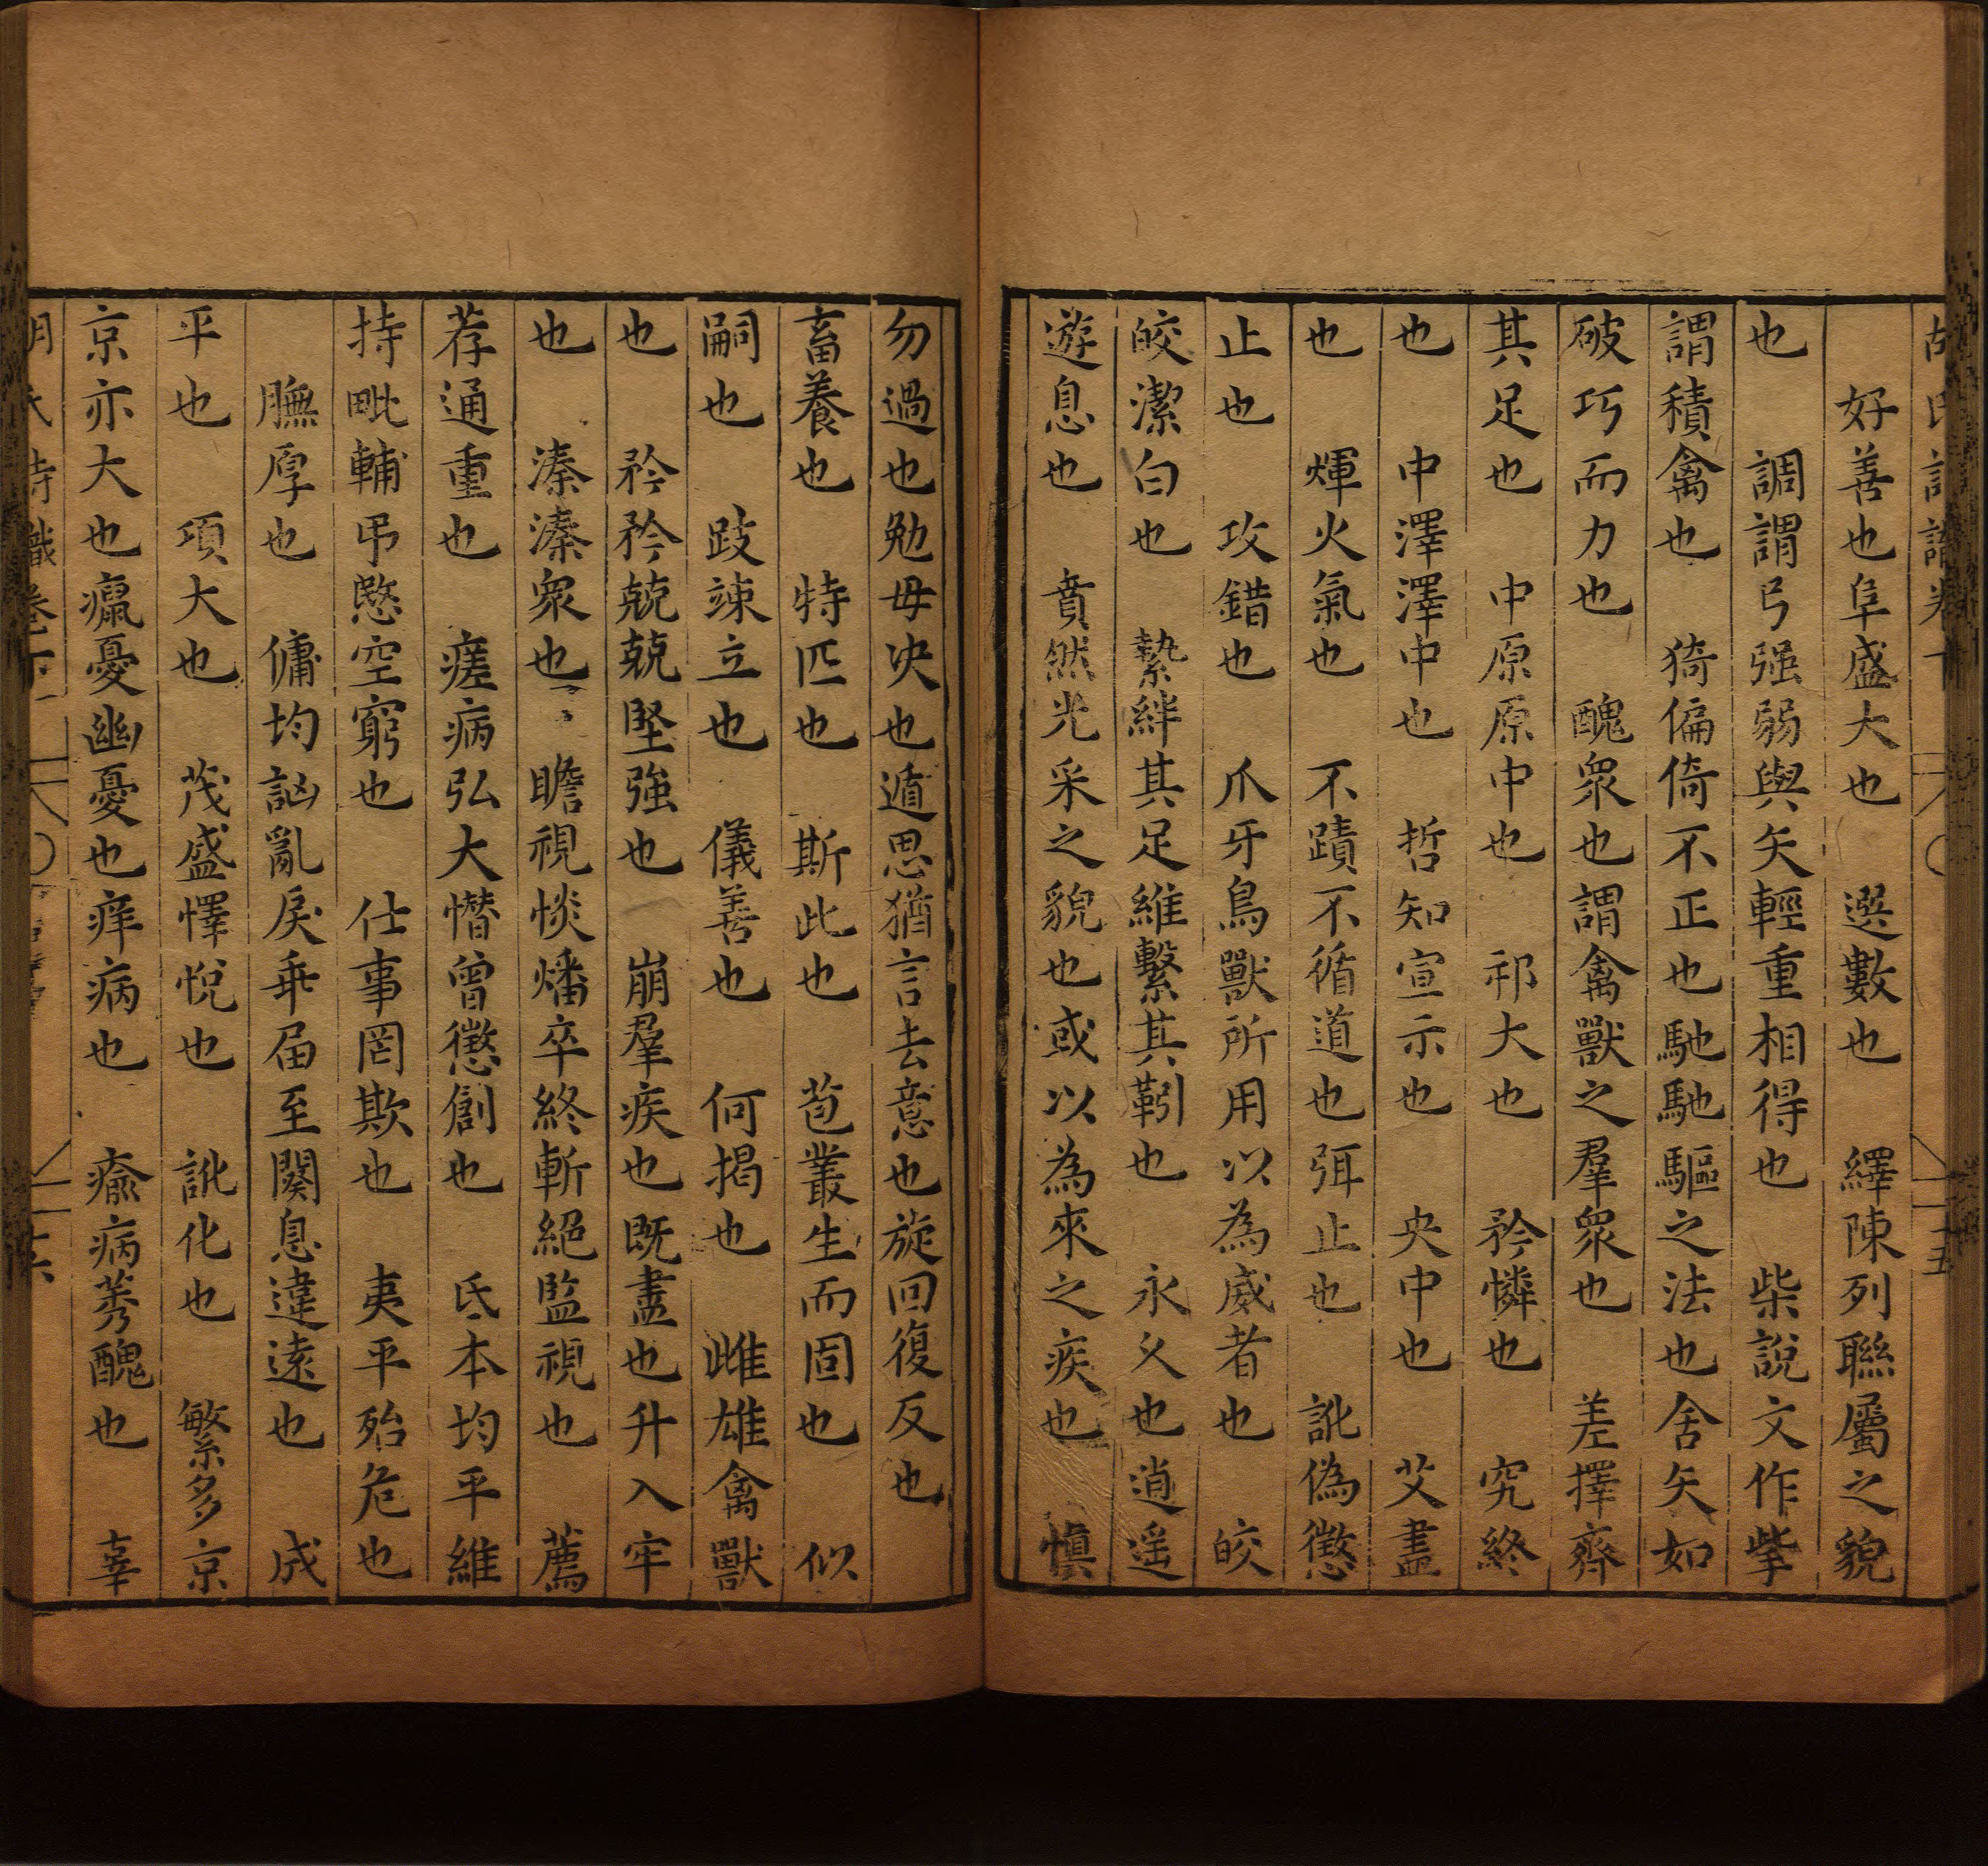 好善也阜盛大也　選數也　繹陳列聯屬之貌
也　調謂弓强弱與矢輕重相得也　柴說文作㧘
謂積禽也　猗偏倚不正也馳馳驅之法也舍矢如
破巧而力也　醜衆也謂禽獸之羣衆也　差擇齊
其足也　中原原中也　祁大也　矜憐也　究終
也　中澤澤中也　哲知宣示也　央中也　艾盡
也　煇火氣也　不蹟不循道也弭止也　訛偽懲
止也　攻錯也　爪牙鳥獸所用以為威者也　皎
皎潔白也　縶絆其足維繫其靷也　永久也逍遥
遊息也　賁然光采之貌也或以為來之疾也　慎
勿過也勉毋决也遁思猶言去意也旋回復反也
畜養也　特匹也　斯此也　苞叢生而固也　似
嗣也　跂竦立也　儀善也　何掲也　雌雄禽獸
也　矜矜兢兢堅強也　崩羣疾也既盡也升入牢
也　溱溱衆也　瞻視惔燔卒終斬絕監視也　薦
荐通重也　瘥病弘大憯曾懲創也　氐本均平維
持毗輔弔愍空窮也　仕事罔欺也　夷平殆危也
膴厚也　傭均訩亂戾乖届至闋息違遠也　成
平也　項大也　茂盛懌悅也　訛化也　繁多京
京亦大也癙憂幽憂也痒病也　瘉病莠醜也　辜